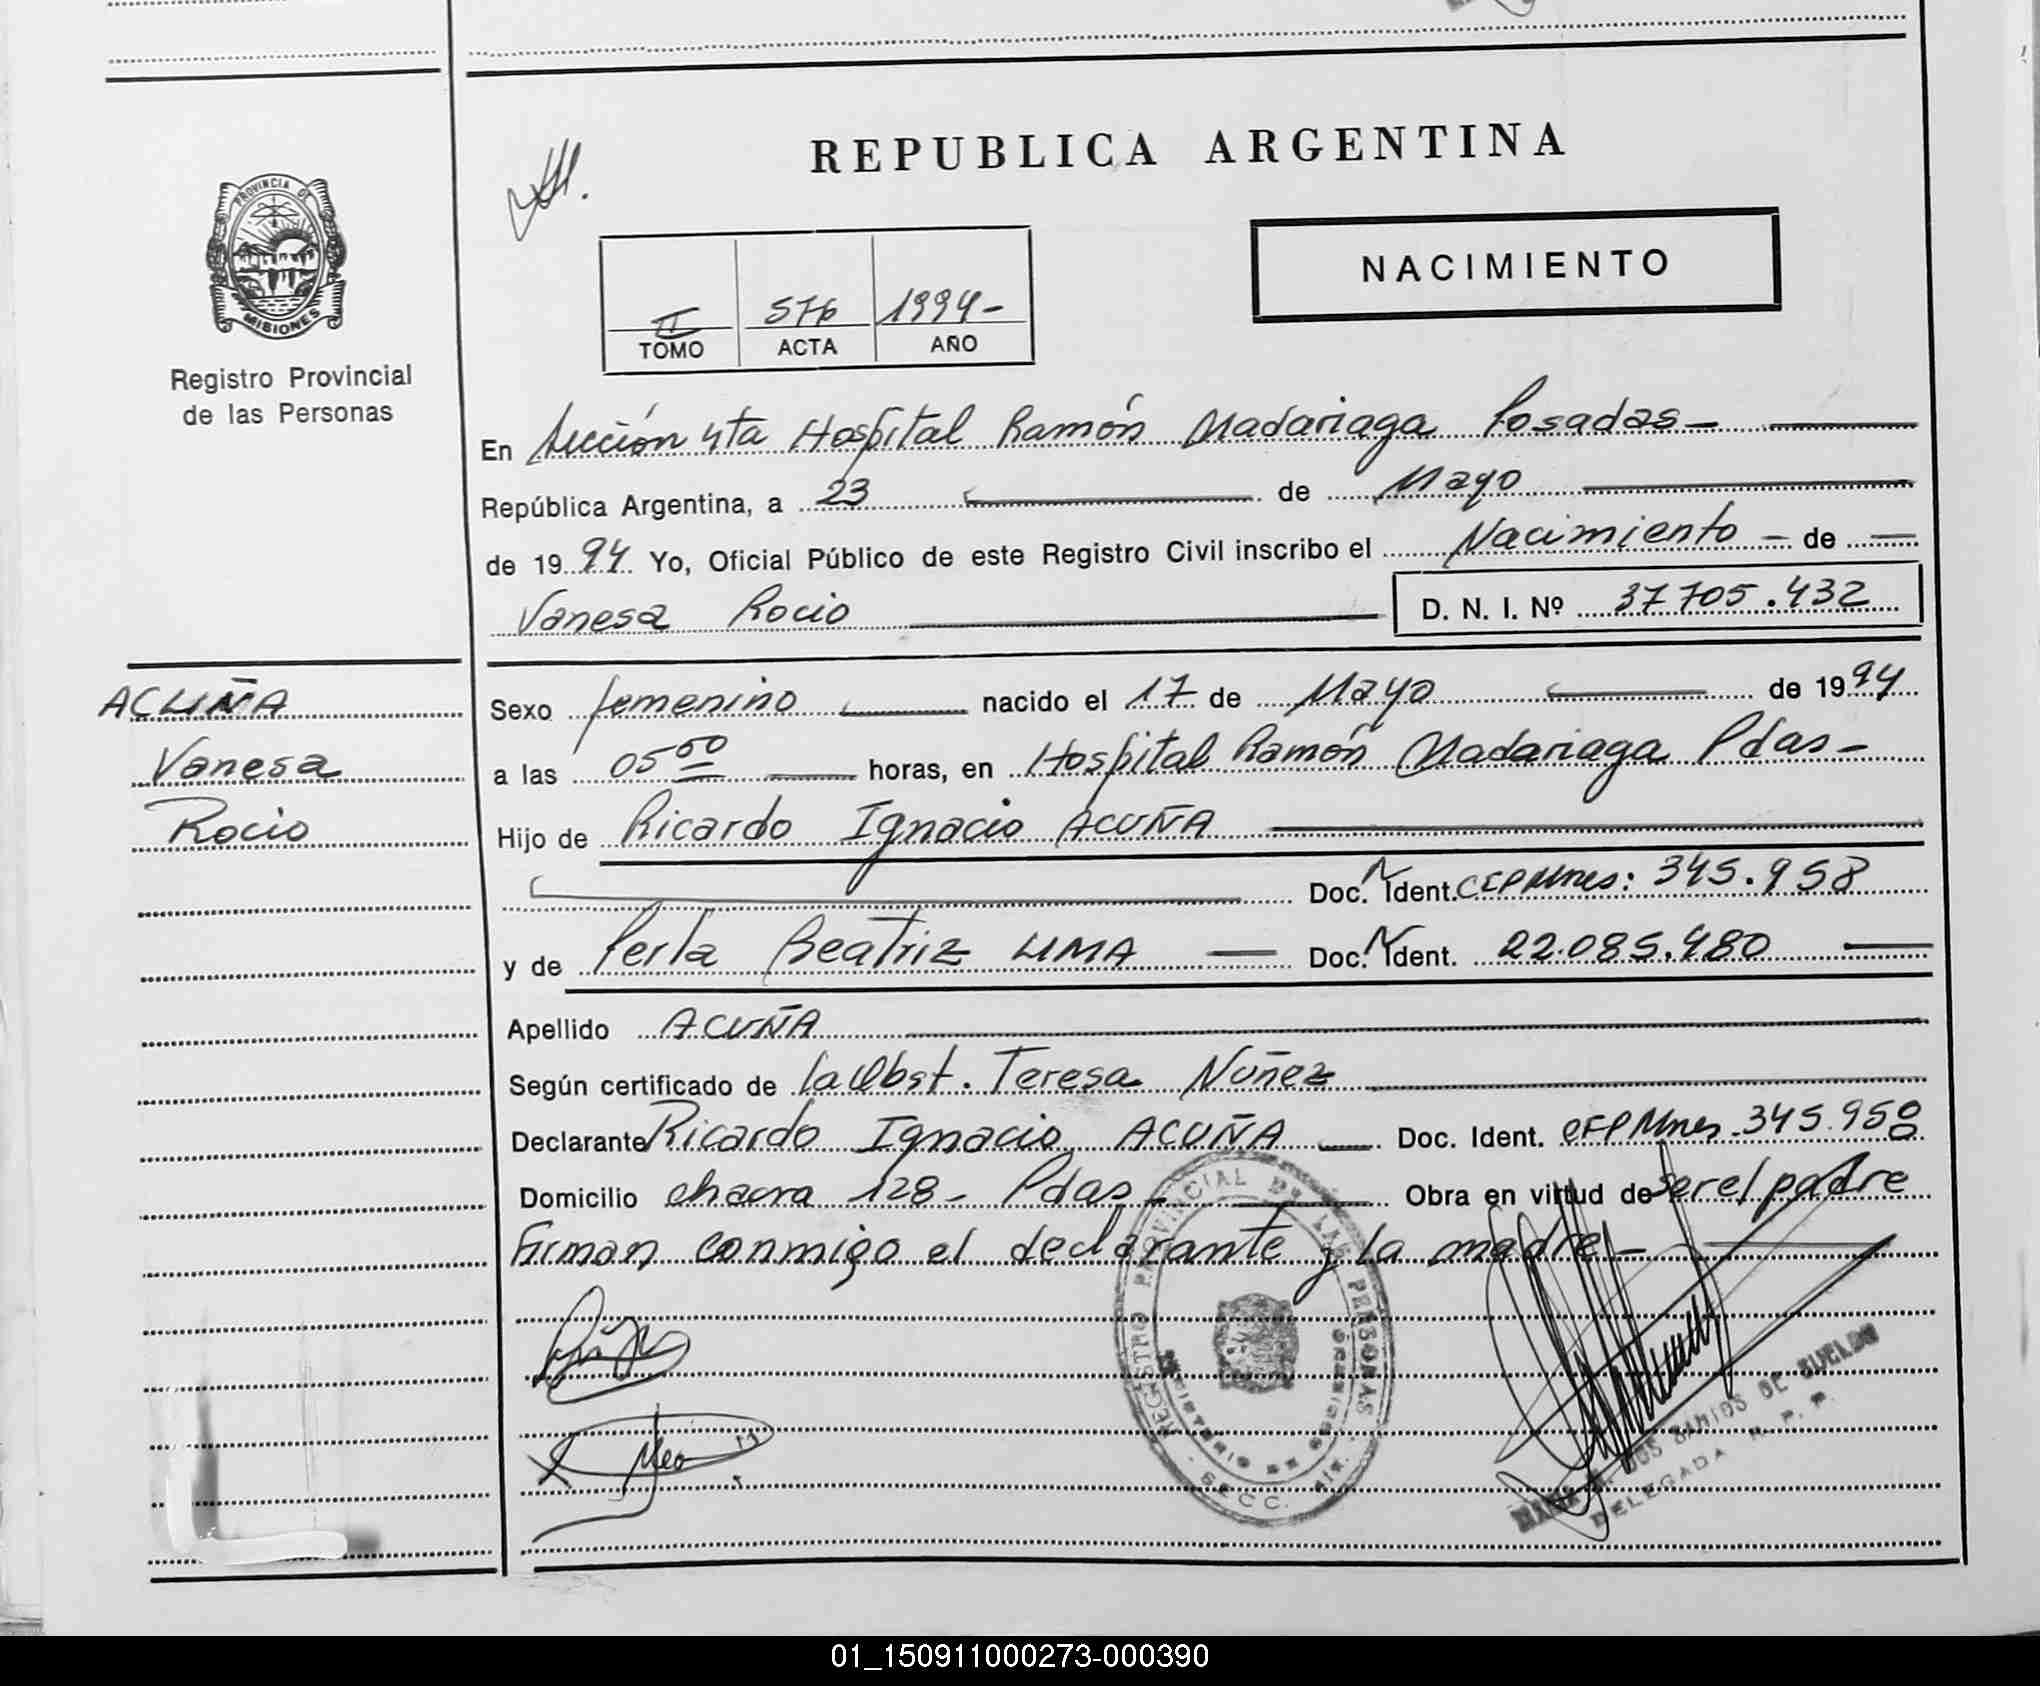 REPUBLICA ARGENTINA
PROVINCIA DE
MISIONES
NACIMIENTO
II 576 1994-
TOMO ACTA AÑO
Registro Provincial
de las Personas
En Sección 4ta Hospital Ramón Madariaga Posadas-
República Argentina, a 23 de Mayo
de 1994 Yo, Oficial Público de este Registro Civil inscribo el Nacimiento - de
Vanesa Rocio D. N. I. Nº 37705.432
ACUÑA
Vanesa
Rocio
Sexo femenino nacido el 17 de Mayo de 1994
a las 05 50 horas, en Hospital Ramón Madariaga Pdas-
Hijo de Ricardo Ignacio ACUÑA
Doc. Ident. CEPMnes: 345.958
y de Perla Beatriz LIMA Doc. Ident. 22.085.980
Apellido ACUÑA
Según certificado de la Obst. Teresa Núñez
Declarante Ricardo Ignacio ACUÑA Doc. Ident. CEPMnes 345.958
Domicilio chacra 128- Pdas- Obra en virtud de ser el padre
Firman conmigo el declarante y la madre-
REGISTRO PROVINCIAL DE LAS PERSONAS
MINISTERIO DE GOBIERNO
SECC.
DE SUELDO
DELEGADA R. P. P.
01_150911000273-000390